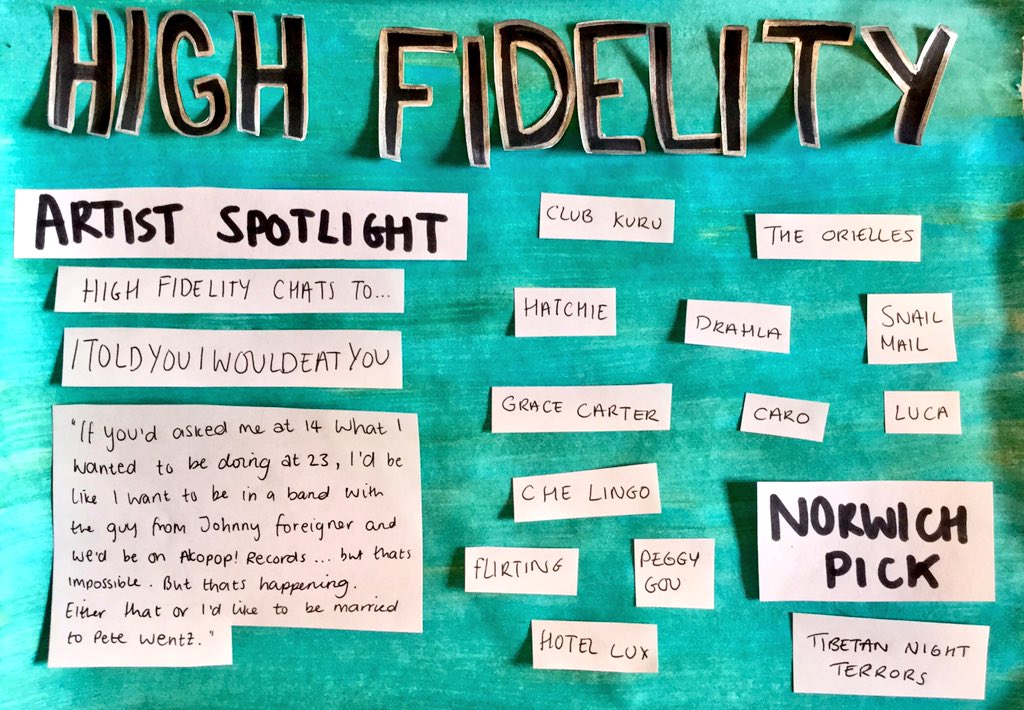 HIGH FIDELITY
ARTIST SPOTLIGHT
HIGH FIDELITY CHATS TO...
ITOLDYOUIWOULDEATYOU
"If you'd asked me at 14 what I
wanted to be doing at 23, I'd be
like I want to be in a band with
the guy from Johnny foreigner and
we'd be on Alcopop! Records... but thats
impossible. But thats happening.
Either that or I'd like to be married
to Pete Wentz."
CLUB KURU
THE ORIELLES
HATCHIE
DRAHLA
SNAIL
MAIL
GRACE CARTER
CARO
LUCA
CHE LINGO
FLIRTING
PEGGY
GOU
HOTEL LUX
NORWICH
PICK
TIBETAN NIGHT
TERRORS